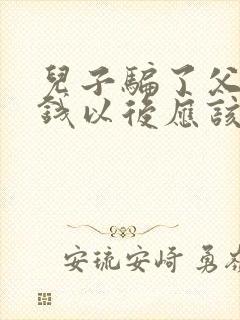 兒子騙了父
錢以後應該
安琉安崎 勇